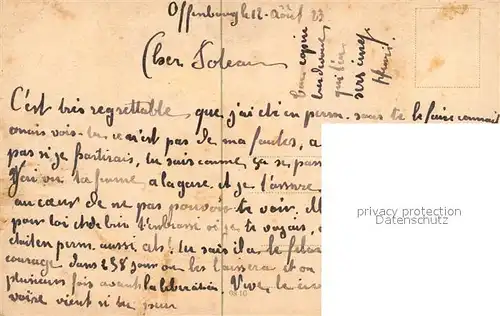 Offenbourg le 12 Août 23
Cher Poteau
bon copain
qui t'en
serre cinq
Henri
C'est très regrettable, que j'ai été en perm. sans te le faire connait
mais vois-tu ce n'est pas de ma faute, a
pas si je partirais, tu sais comme ça se pas
J'ai vu ta femme a la gare, et je t'assure
au coeur de ne pas pouvoir te voir. 
pour toi et de bien t'embrasse si je te voyais,
était en perm. aussi, ah! tu sais il a le
courage dans 238 jour on les laissera et on
plusieurs fois avant la libération. Vive le
voire vient si tu peux
privacy protection
Datenschutz